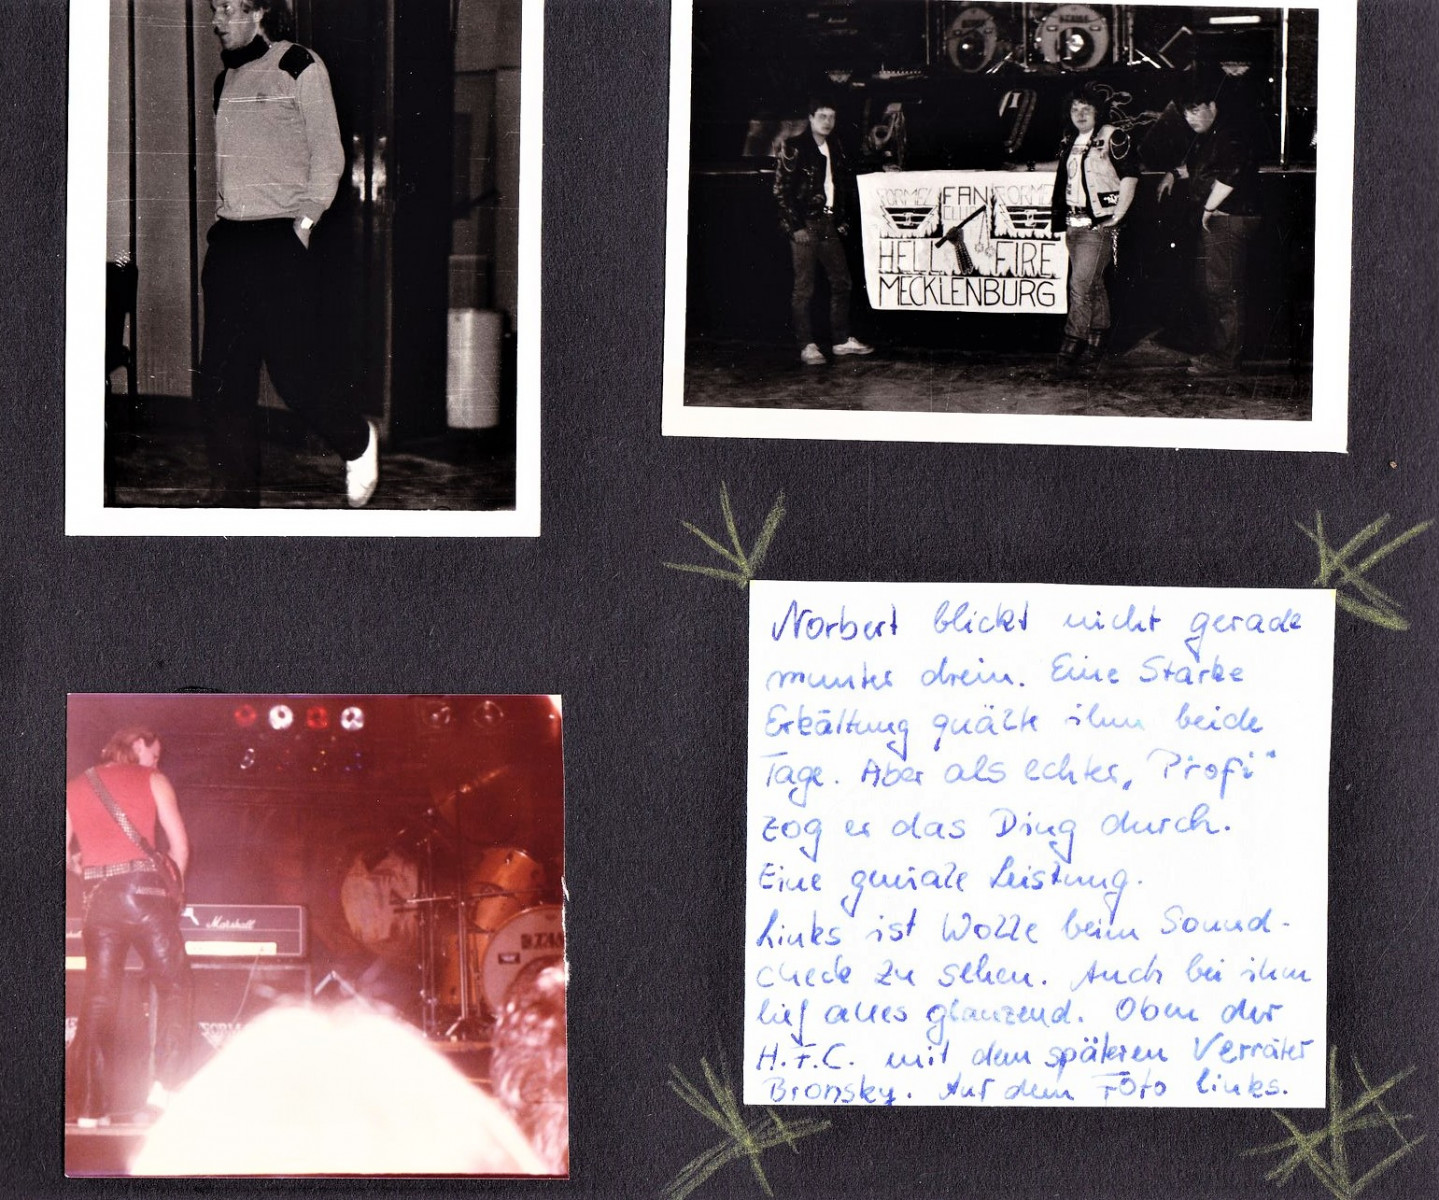 FORMEL FAN FORMEL
CLUB
HELL FIRE
MECKLENBURG
Norbert blickt nicht gerade
munter drein. Eine Starke
Erkältung quälte ihn beide
Tage. Aber als echter „Profi"
zog er das Ding durch.
Eine geniale Leistung.
Links ist Wolle beim Sound-
check zu sehen. Auch bei ihm
lief alles glänzend. Oben der
H.F.C. mit dem späteren Verräter
Bronsky. Auf dem Foto links.
Marshall
TAMA